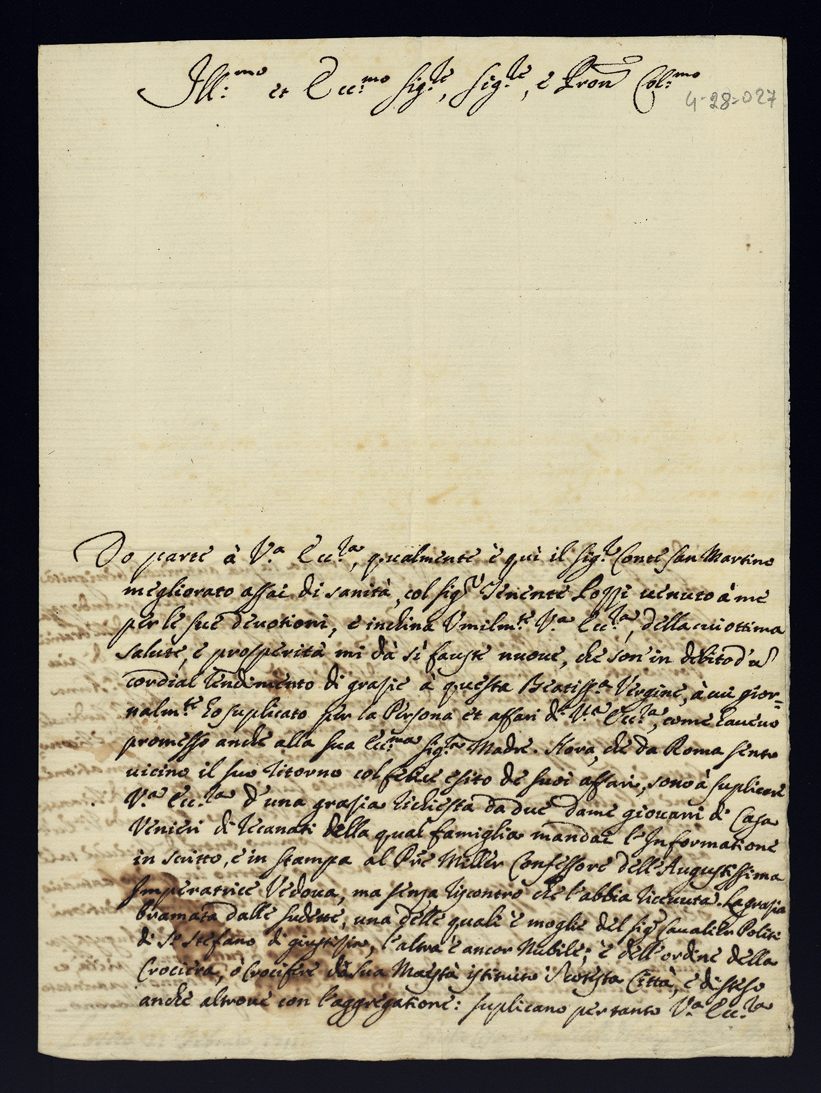 Ill:mo et Ecc:mo Sig.re, Sig.re, e Pron Col:mo
4-28-027
Do parte à V.a Ecc.za, qualmente è qui il Sig.r Conte San Martino
megliorato assai di sanità, col Sig.r Tenente Rossi uenuto à me
per le sue deuotioni, e inclina Vmilm.te V.a Ecc.za, della cui ottima
salute, e prosperità mi dà sì fauste nuoue, che son' in debito d'un
cordial rendimento di grazie à questa Beatiss.a Vergine, à cui gior-
nalm.te hò suplicato per la Persona et affari di V.a Ecc.za, come l'aueuo
promesso anche alla sua Ecc:ma Sig.ra Madre. Hora, che da Roma sento
uicino il suo ritorno col felice esito de suoi affari, sono à suplicare
V.a Ecc.za d'una grazia richiesta da due dame giouani di Casa
Venieri di Recanati della qual famiglia mandai l'Informatione
in scritto, e in stampa al P're Miller Confessore dell'Augustissima
Imperatrice Vedoua, ma senza riscontro che l'abbia riceuuta. La grazia
bramata dalle sudette, una delle quali è moglie del Sig.r Caualier Politi
di S.to Stefano di giustizia, l'altra è ancor Nubile; è dell'ordine della
Crociera, ò Crocifere da Sua Maestà istituito in cotesta Città, e disteso
anche altroue con l'aggregatione: suplicano per tanto V.a Ecc.za